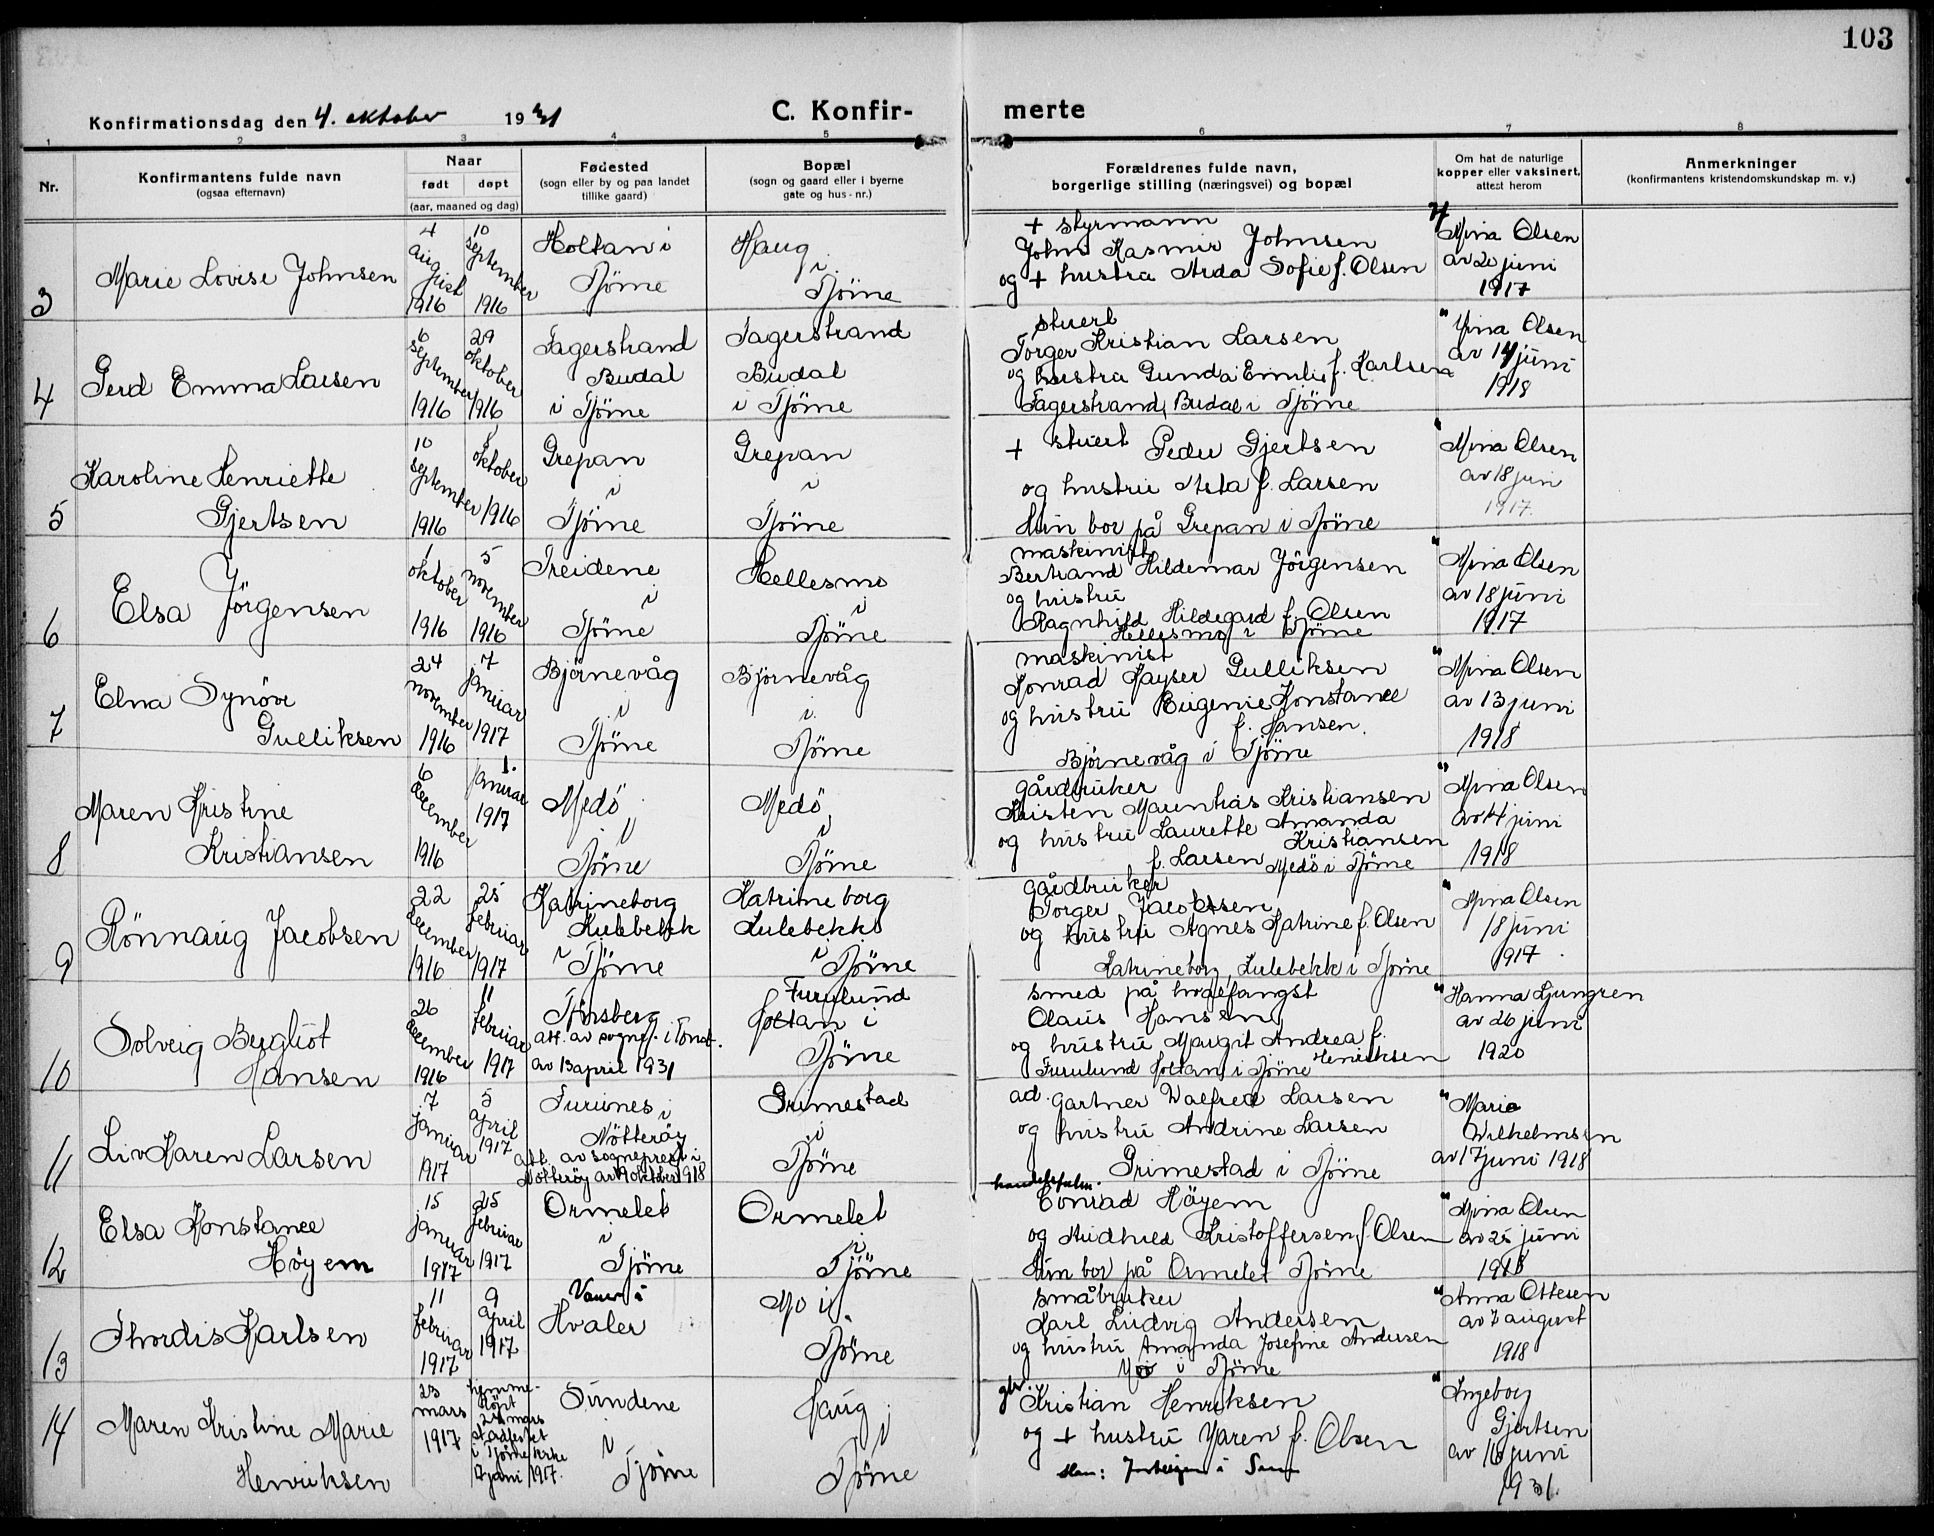 103
Konfirmationsdag den 4. oktober 1931
C. Konfir-
merte
1 2 3 4 5 6 7 8
Nr.
Konfirmantens fulde navn
(ogsaa efternavn)
Naar
født døpt
(aar, maaned og dag)
Fødested
(sogn eller by og paa landet
tillike gaard)
Bopæl
(sogn og gaard eller i byerne
gate og hus-nr.)
Forældrenes fulde navn,
borgerlige stilling (næringsvei) og bopæl
Om hat de naturlige
kopper eller vaksinert,
attest herom
Anmerkninger
(konfirmantens kristendomskundskap m. v.)
3
Marie Lovise Johnsen
4
august
1916
10
september
1916
Holtan i
Tjöme
Haug
i
Tjöme
+ styrmann
John Kasmir Johnsen
og + hustru Arda Sofie f. Olsen
Mina Olsen
av 20 juni
1917
4
Gerd Emma Larsen
6
september
1916
29
oktober
1916
Fagerstrand
Budal
i Tjöme
Fagerstrand
Budal
i Tjöme
stuert
Torger Kristian Larsen
og hustru Gunda Emilie f. Karlsen
Fagerstrand, Budal i Tjöme
" Mina Olsen
av 14 juni
1918
5
Karoline Henriette
Gjertsen
10
september
1916
8
oktober
1916
Grepan
i
Tjöme
Grepan
i
Tjöme
+ stuert Peder Gjertsen
og hustru Asta f. Larsen
Hun bor på Grepan i Tjöme
" Mina Olsen
av 18 juni
1917.
6
Elsa Jörgensen
1
oktober
1916
5
november
1916
Treidene
i
Tjöme
Hellesmo
i
Tjöme
maskinist
Bertrand Hildemar Jörgensen
og hustru
Ragnhild Hildegard f. Olsen
Hellesmo i Tjöme
" Mina Olsen
av 18 juni
1917
7
Elna Synöve
Gulliksen
24
november
1916
7
januar
1917
Björnevåg
i
Tjöme
Björnevåg
i
Tjöme
maskinist
Konrad Kayser Gulliksen
og hustru Eugenie Konstance
f. Hansen.
Björnevåg i Tjöme
" Mina Olsen
av 13 juni
1918
8
Maren Kristine
Kristiansen
6
december
1916
1.
januar
1917
Medö
i
Tjöme
Medö
i
Tjöme
gårdbruker
Kristen Marenhas Kristiansen
og hustru Laurette Amanda
Kristiansen
f. Larsen Medö i Tjöme
" Mina Olsen
av 14 juni
1918
9
Rönnaug Jacobsen
22
december
1916
25
februar
1917
Katrineborg
Kulebekk
i Tjöme
Katrineborg
Kulebekk
i Tjöme
gårdbruker
Torger Jacobsen
og hustru Agnes Katrine f. Olsen
Katrineborg, Kulebekk i Tjöme
" Mina Olsen
18 juni
1917.
10
Solveig Bergliot
Hansen
26
december
1916
11
februar
1917
Tönsberg
att. av sognepr. i Tönsb.
av 13 april 1931
Furulund
Holtan i
Tjöme
smed på hvalfangst
Olaus Hansen
og hustru Margit Andrea f.
Henriksen
Furulund Holtan i Tjöme
" Hanna Ljungren
av 26 juni
1920
11
Liv Karen Larsen
7
januar
1917
5
april
1917
Furunes i
Nötteröy
att. av sogneprest i
Nötteröy av 19 oktober 1918
Grimestad
i
Tjöme
ad. gartner Walfred Larsen
og hustru Andrine Larsen
Grimestad i Tjöme
" Marie
Wilhelmsen
av 17 juni 1918
12
Elsa Konstance
Höyem
15
januar
1917
25
februar
1917
Ormelet
i
Tjöme
Ormelet
i
Tjöme
handelsfulm.
Conrad Höyem
og Aidhild Kristoffersen f. Olsen
Hun bor på Ormelet Tjöme
" Mina Olsen
av 25 juni
1918
13
Thordis Karlsen
11
februar
1917
9
april
1917
Hvaler
Mo i
Tjöme
småbruker
Karl Ludvig Andersen
og hustru Amanda Josefine Andersen
Mo i Tjöme
" Anna Ottesen
av 7 august
1918
14
Maren Kristine Marie
Henriksen
23
mars
1917
hjemme-
döpt
24 mars
stadfestet
i Tjöme kirke
17 juni 1917.
Sundene
i
Tjöme
Haug
i
Tjöme
gbr. Kristian Henriksen
og + hustru Maren f. Olsen
" Ingeborg
Gjertsen
av 16 juni
1931.